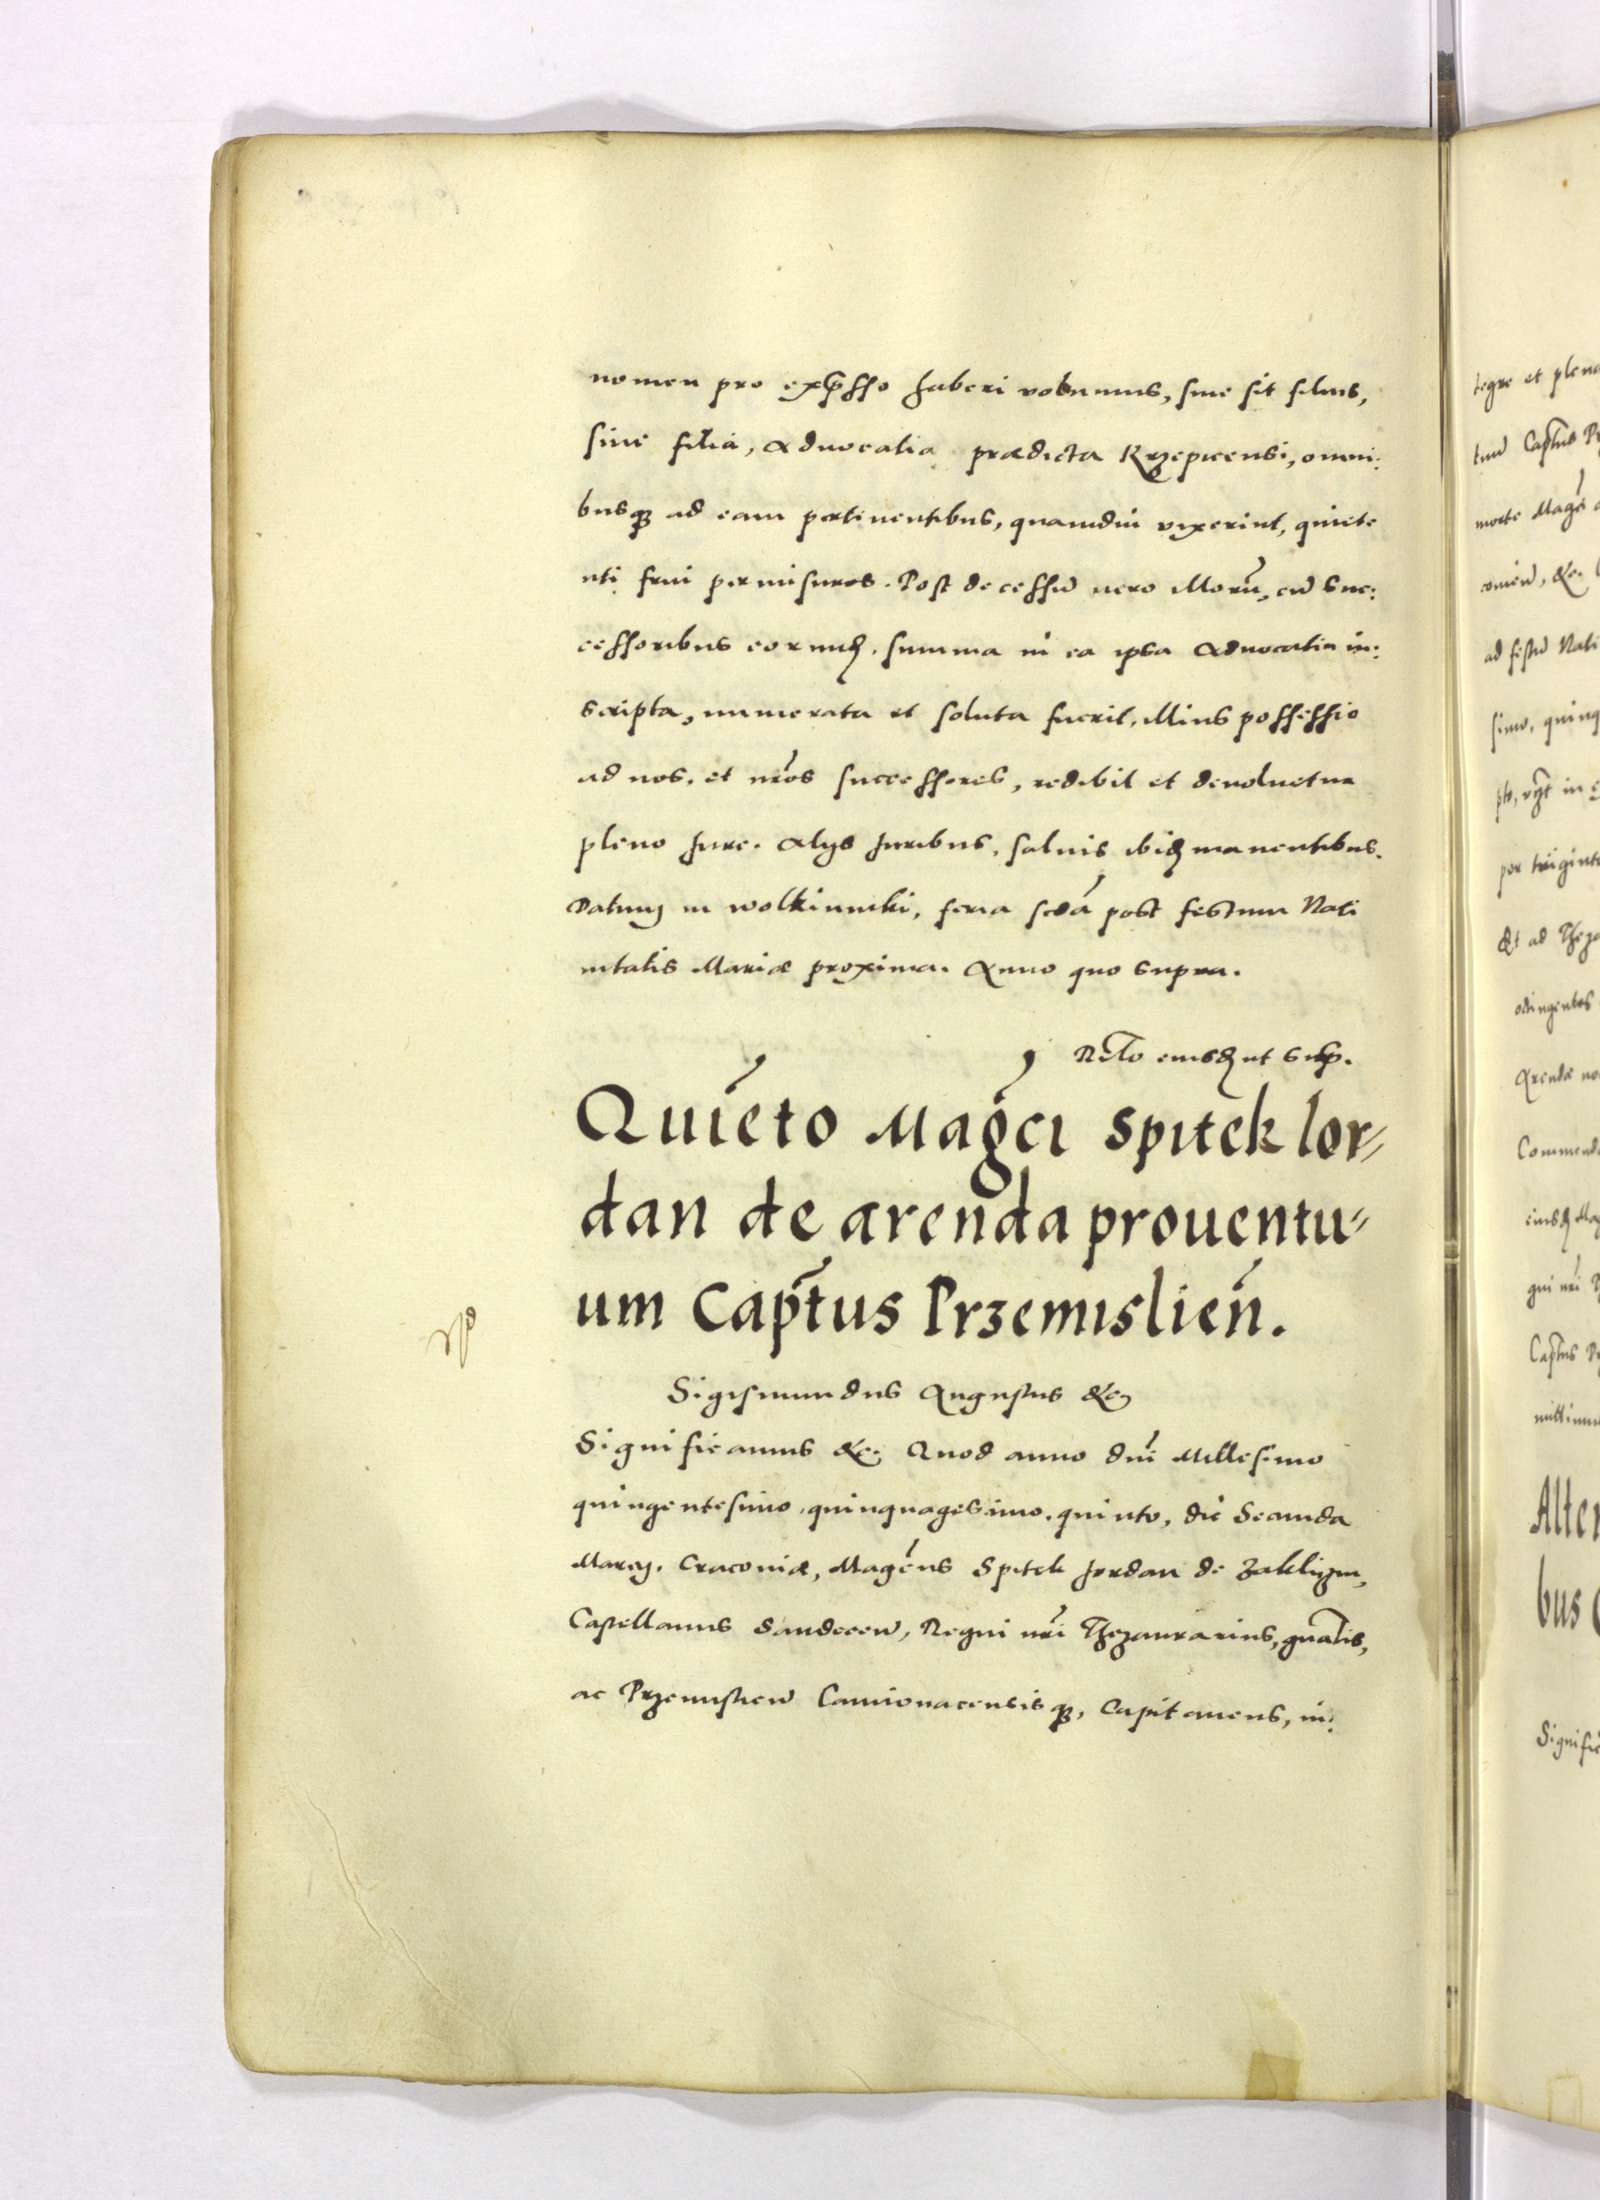 nomen pro exp̄sso haberi volumus, siue sit filius,
siue filia, Aduocatia prædicta Krzepicensi, omni:
busq̃ ad eam pertinentibus, quamdiu vixerint, quiete
uti frui permisuros. Post decessũ uero illorũ, cũ suc:
cessoribus eorundẽ, summa in ea ipsa Aduocatia in:
scripta, numerata et soluta fuerit, illius possessio
ad nos, et nr̃os successores, redibit et deuoluetur
pleno Jure. Alijs Juribus, saluis ibidẽ manentibus.
Datum in Wolkinniki, feria scdã post festum Nati
uitatis Mariæ proxima. Anno quo supra.
Rel̃o eiusdẽ ut sup̃.
Quiẽto Magc̃i Spitek Ior=
dan de arenda prouentu=
um Cap̃tus Przemislieñ.
Sigismundus Augustus &c
Significamus &c. Quod anno dñi Millesimo
quingentesimo, quinquagesimo, quinto, die Secunda
Marcij. Cracouiæ, Mageñs Spitek Jordan de Zaklyzin,
Castellanus Sandeceñ, Regni nr̃i Thezaurarius, gñalis,
ac Przemislieñ Camionacensisq̃, Capitaneus, in:
tegre et plena
tuũ Cap̃tus Pr
morte Mag̃ci
ad festũ Nati
simo, quinq
per triginta
Et ad Theza
Arendæ no
Commenda
eiusdẽ Mag
gni nr̃i
Cap̃tus Pr
Alter
bus
Signific